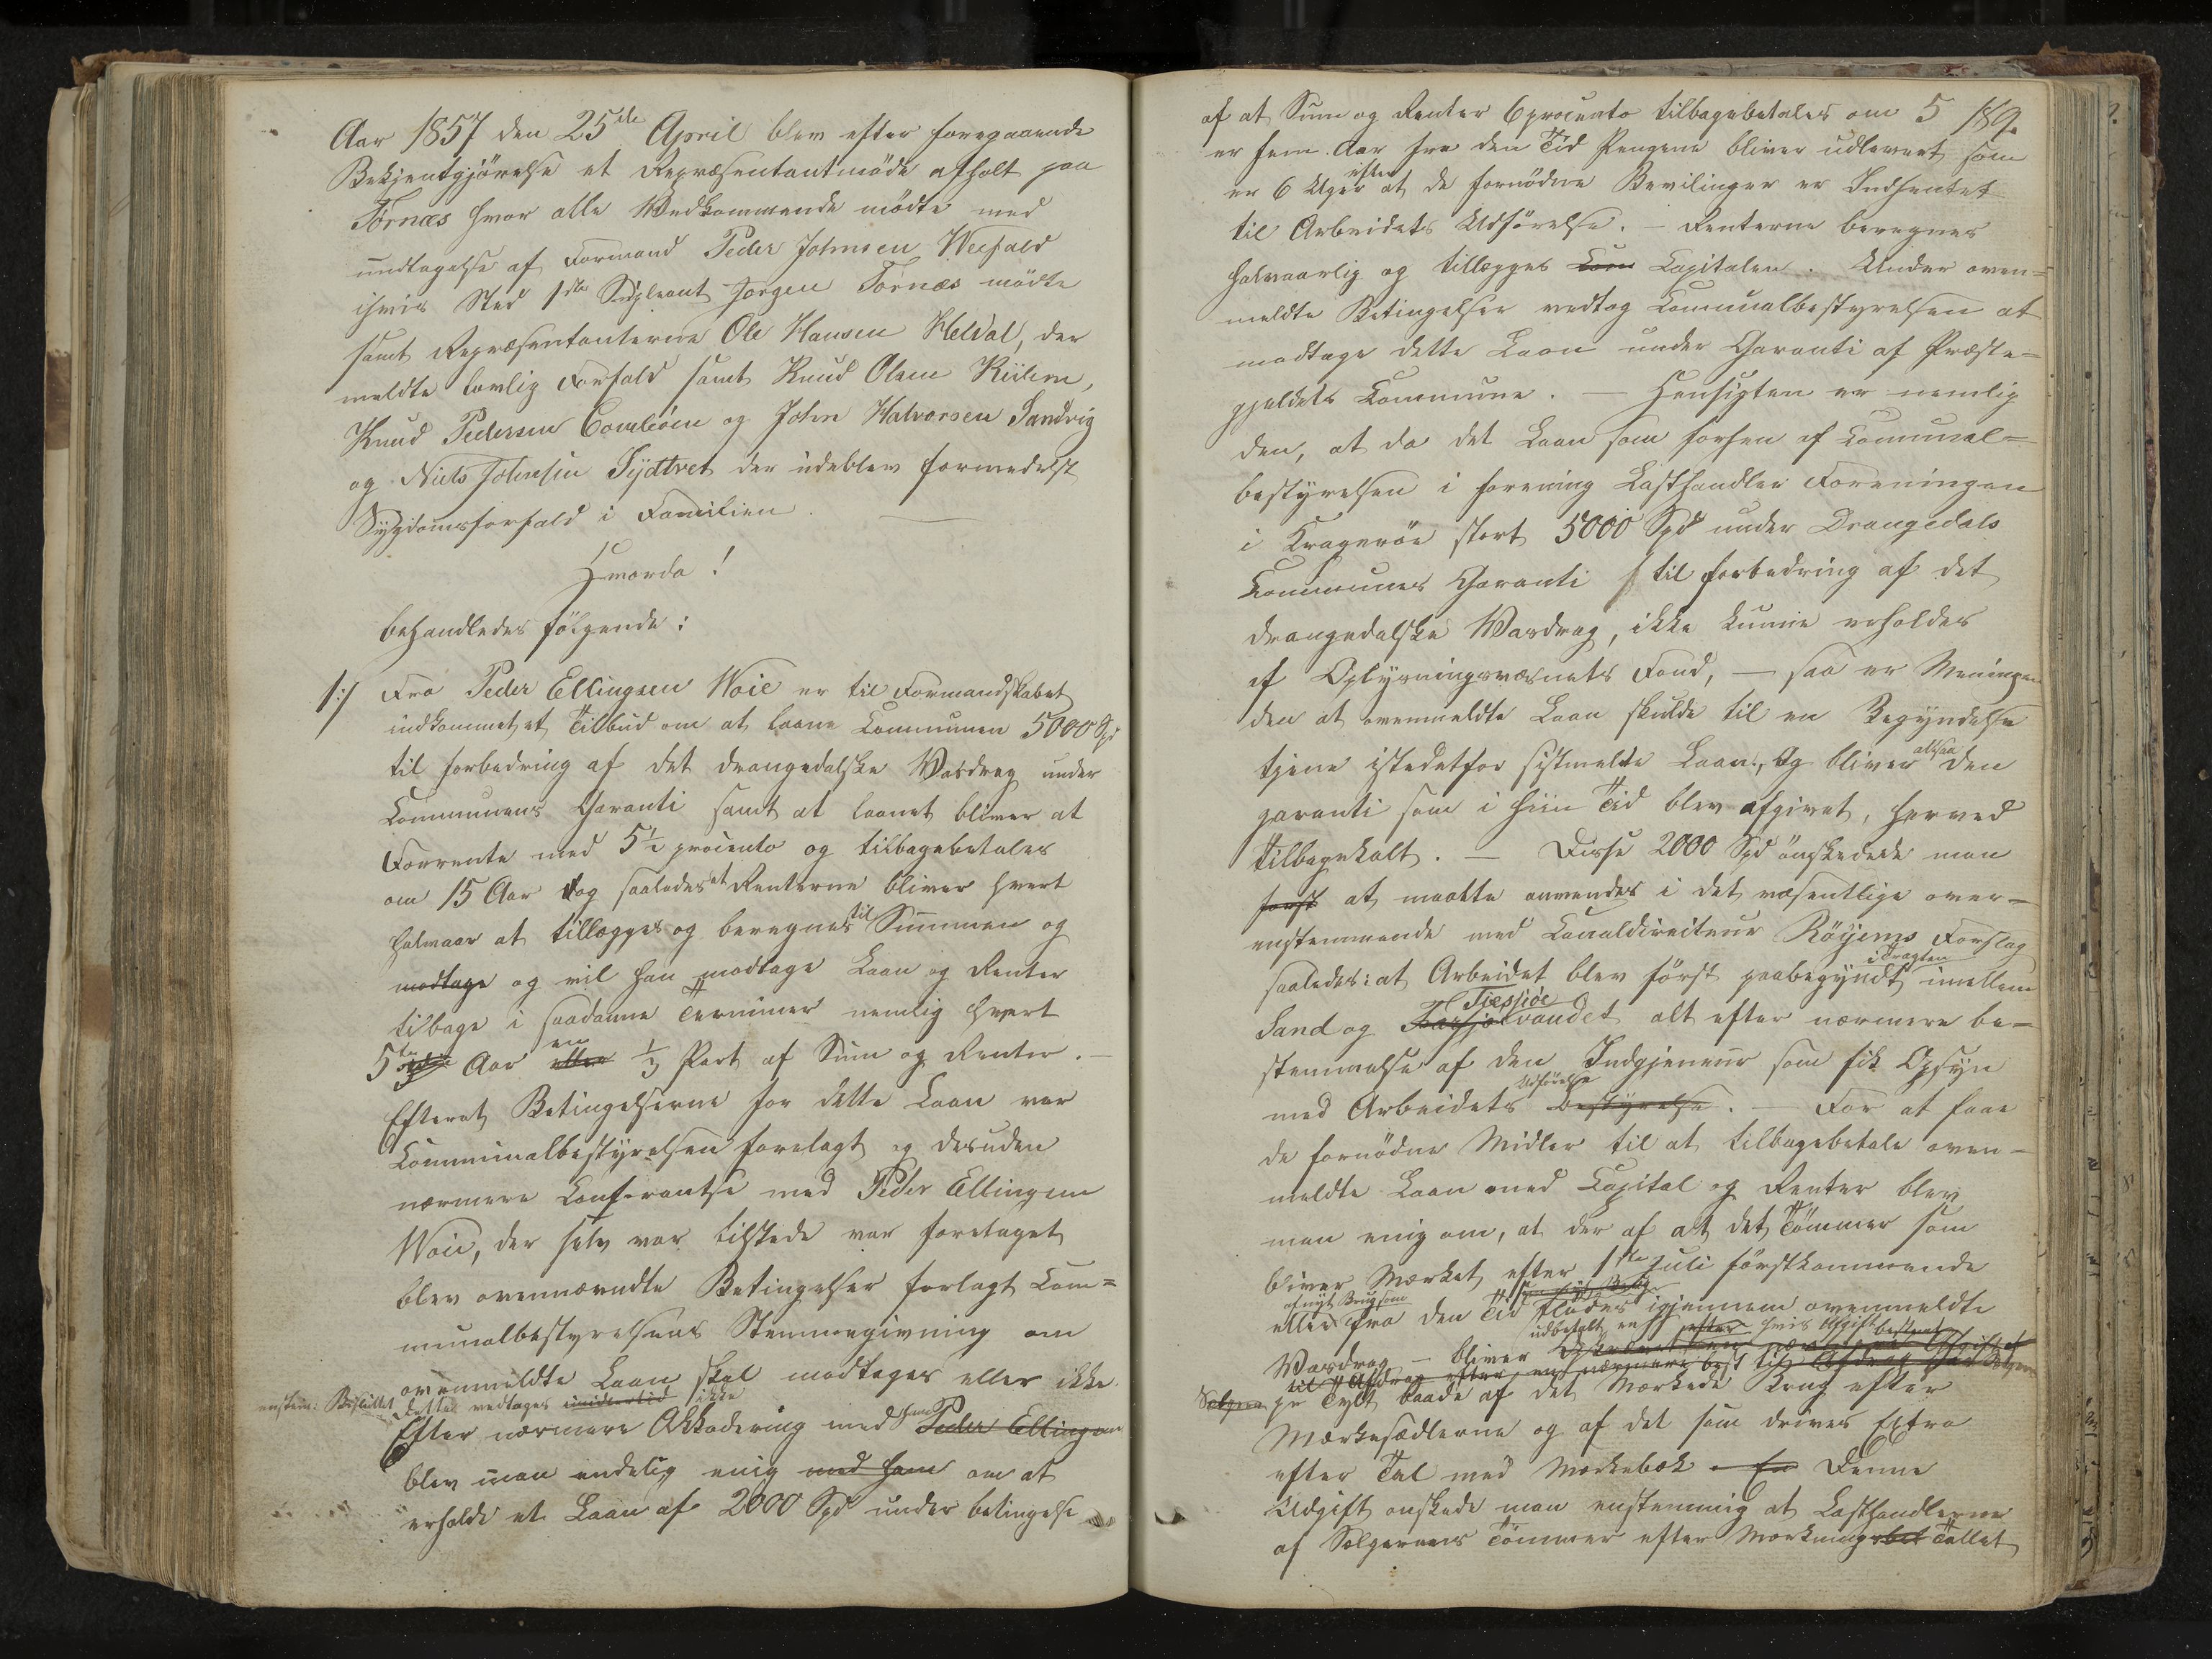 Aar 1857 den 25de April blev efter foregaaende
Bekjentgjörelse et Repræsentantmöde afholt paa
Törnæs hvor alle Wedkommende mödte med
undtagelse af Formand Peder Johnsen Weefald
ihvis Sted 1ste Supleant Jörgen Törnæs mödte
samt Repræsentanterne Ole Hansen Heldal, der
meldte lovlig Forfald samt Knud Olsen
Knud Pedersen og John Halvorsen Sandvig
og Niels Johnsen der udeblev formedelst
Sygdomsforfald i Familien. —
Hvorda!
behandledes fölgende:
1:/ Fra Peder Ellingsen Woie er til Formandskabet
indkommet et Tilbud om at laane Communen 5000 Spd
til forbedring af det drangedalske Vasdrag under
Communens Garanti samt at laanet bliver at
Forrente med 5½ procento og tilbagebetales
om 15 Aar dog saaledes at Renterne bliver hvert
halvaar at tillægges og beregnes til Summen og
modtage og vil han modtage Laan og Renter
tilbage i saadanne Terminer nemlig hvert
5te Aar en ⅓ Part af Sum og Renter. —
Efterat Betingelserne for dette Laan var
Communalbestyrelsen forelagt og desuden
nærmere Conferantse med Peder Ellingsen
Woie, der selv var tilstede var foretaget
blev ovennævndte Betingelser forlagt Com=
munalbestyrelsens Stemmegivning om
ovenmeldte Laan skal modtages eller ikke.
enstem: Besluttet dette vedtages imidlertid ikke
Efter nærmere Akkodering med ham Peder Ellingsen
blev man endelig enig med ham om at
erholde et Laan af 2000 Spd under betingelse
af at Sum og Renter 6 procento tilbagebetales om 5 189.
er fem Aar fra den Tid Pengene bliver udleveret som
er 6 Uger efter at de fornödne Bevilinger er Indhentet
til Arbeidets Udförelse. — Renterne beregnes
halvaarlig og tillægges Capitalen. Under oven=
meldte Betingelser vedtog Communalbestyrelsen at
modtage dette Laan under Garanti af Præste=
gjeldets Commune. — Hensigten er nemlig
den, at da det Laan som forhen af Communal=
bestyrelsen i forening Lasthandler Foreningen
i Krageröe stort 5000 Spd under Drangedals
Communes Garanti til forbedring af det
drangedalske Vasdrag, ikke kunne erholdes
af Oplysningsvæsnets Fond, — saa er Meningen
den at ovenmeldte Laan skulde til en Begyndelse
tjene istedetfor sistmelte Laan, og bliver altsaa den
garanti som i hiin Tid blev afgivet, herved
tilbagekalt. — Disse 2000 Spd önskedede man
först at maatte anvendes i det væsentlige over=
enstemmende med Canaldirecteur Röyems Forslag
saaledes: at Arbeidet blev först paabegyndt i Tragten imellem
Sand og Tiesjöe vandet alt efter nærmere be=
stemmelse af den Indgjeneur som fik Opsyn
med Arbeidets Udförelse bestyrelse. — For at faae
de fornödne Midler til at tilbagebetale oven=
meldte Laan med Capital og Renter blev
man enig om, at der af alt det Tömmer som
bliver Mærket efter 1ste Juli förstkommende
af nyt Brug som
eller fra den Tid flödes igjennem ovenmeldte
udbetalt en efter hvis Afgift bestemt
Vasdrag — bliver
til Afdrag efter en nærmere
Sælgeren pr Tylt baade af det Mærkede Brug efter
Mærkesædlerne og af det som drives Extra
efter Tal med Mærkebok. En Denne
Udgift önskede man enstemmig at Lasthandlerne
af Sælgerens Tömmer efter Mærkning Tallet